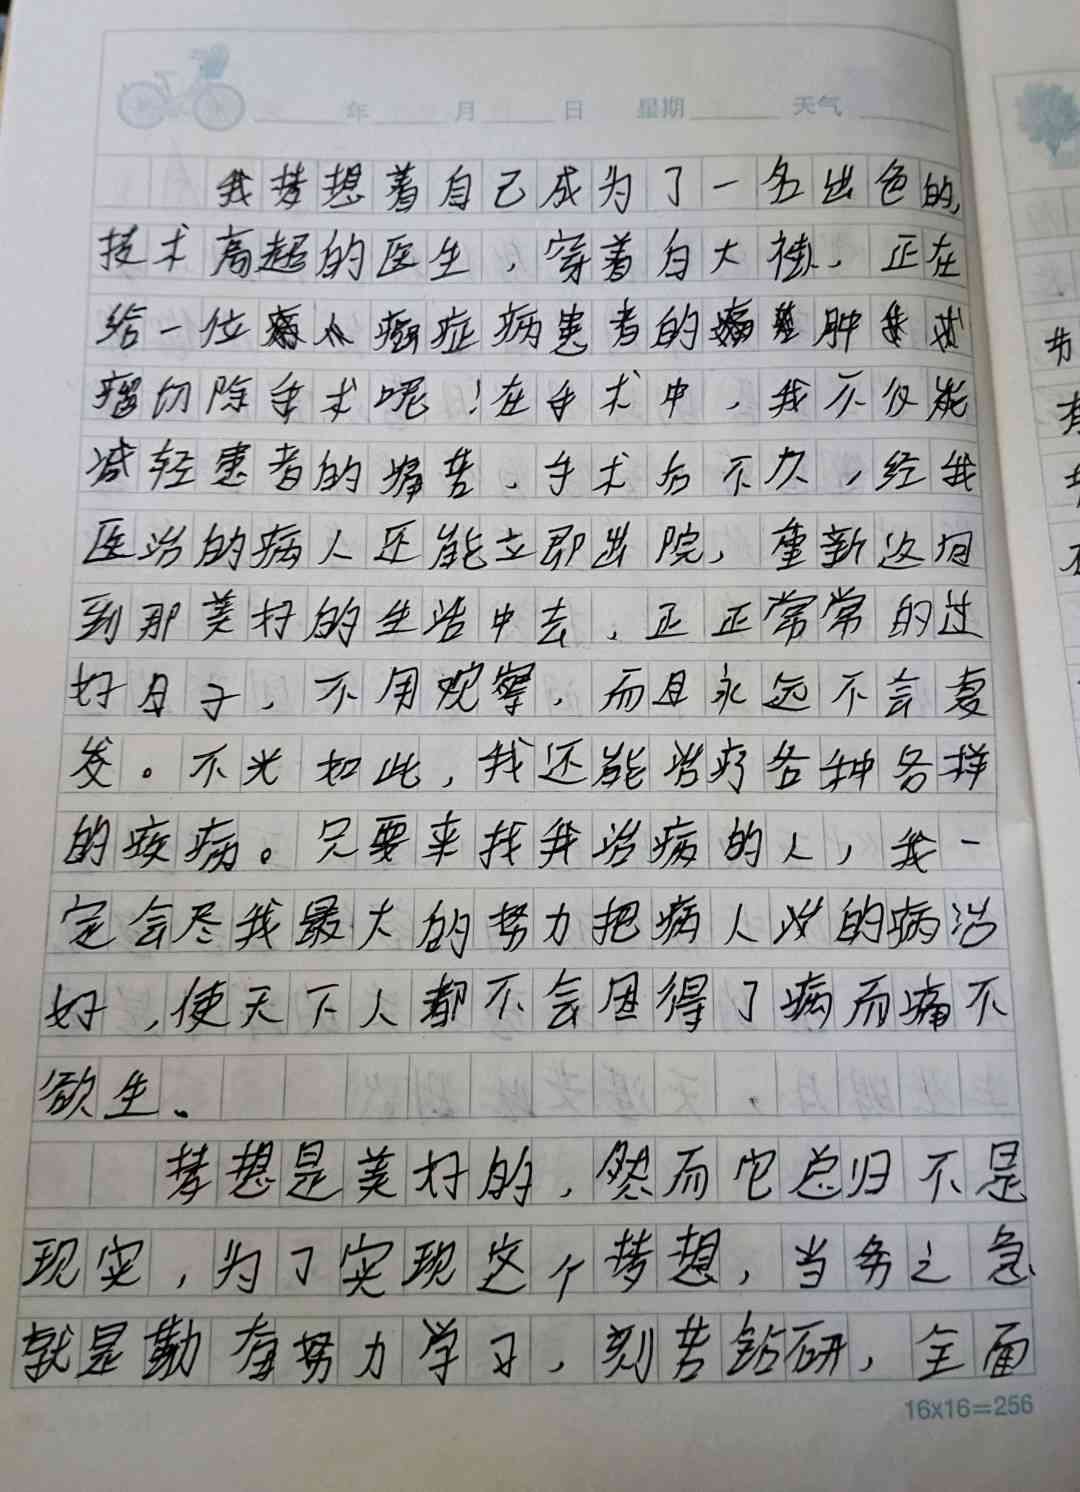 年 月 日 星期 天气
我梦想着自己成为了一名出色的,
技术高超的医生，穿着白大褂，正在
给一位癌症病患者的肿
瘤切除手术呢！在手术中，我不仅能
减轻患者的痛苦，手术后不久，经我
医治的病人还能立即出院，重新返回
到那美好的生活中去，正正常常的过
好日子，不用观察，而且永远不会复
发。不光如此，我还能治疗各种各样
的疾病。只要来找我治病的人，我一
定会尽我最大的努力把病人的病治
好，使天下人都不会因得了病而痛不
欲生。
梦想是美好的，然而它总归不是
现实，为了实现这个梦想，当务之急
就是勤奋努力学习，刻苦钻研，全面
16x16=256